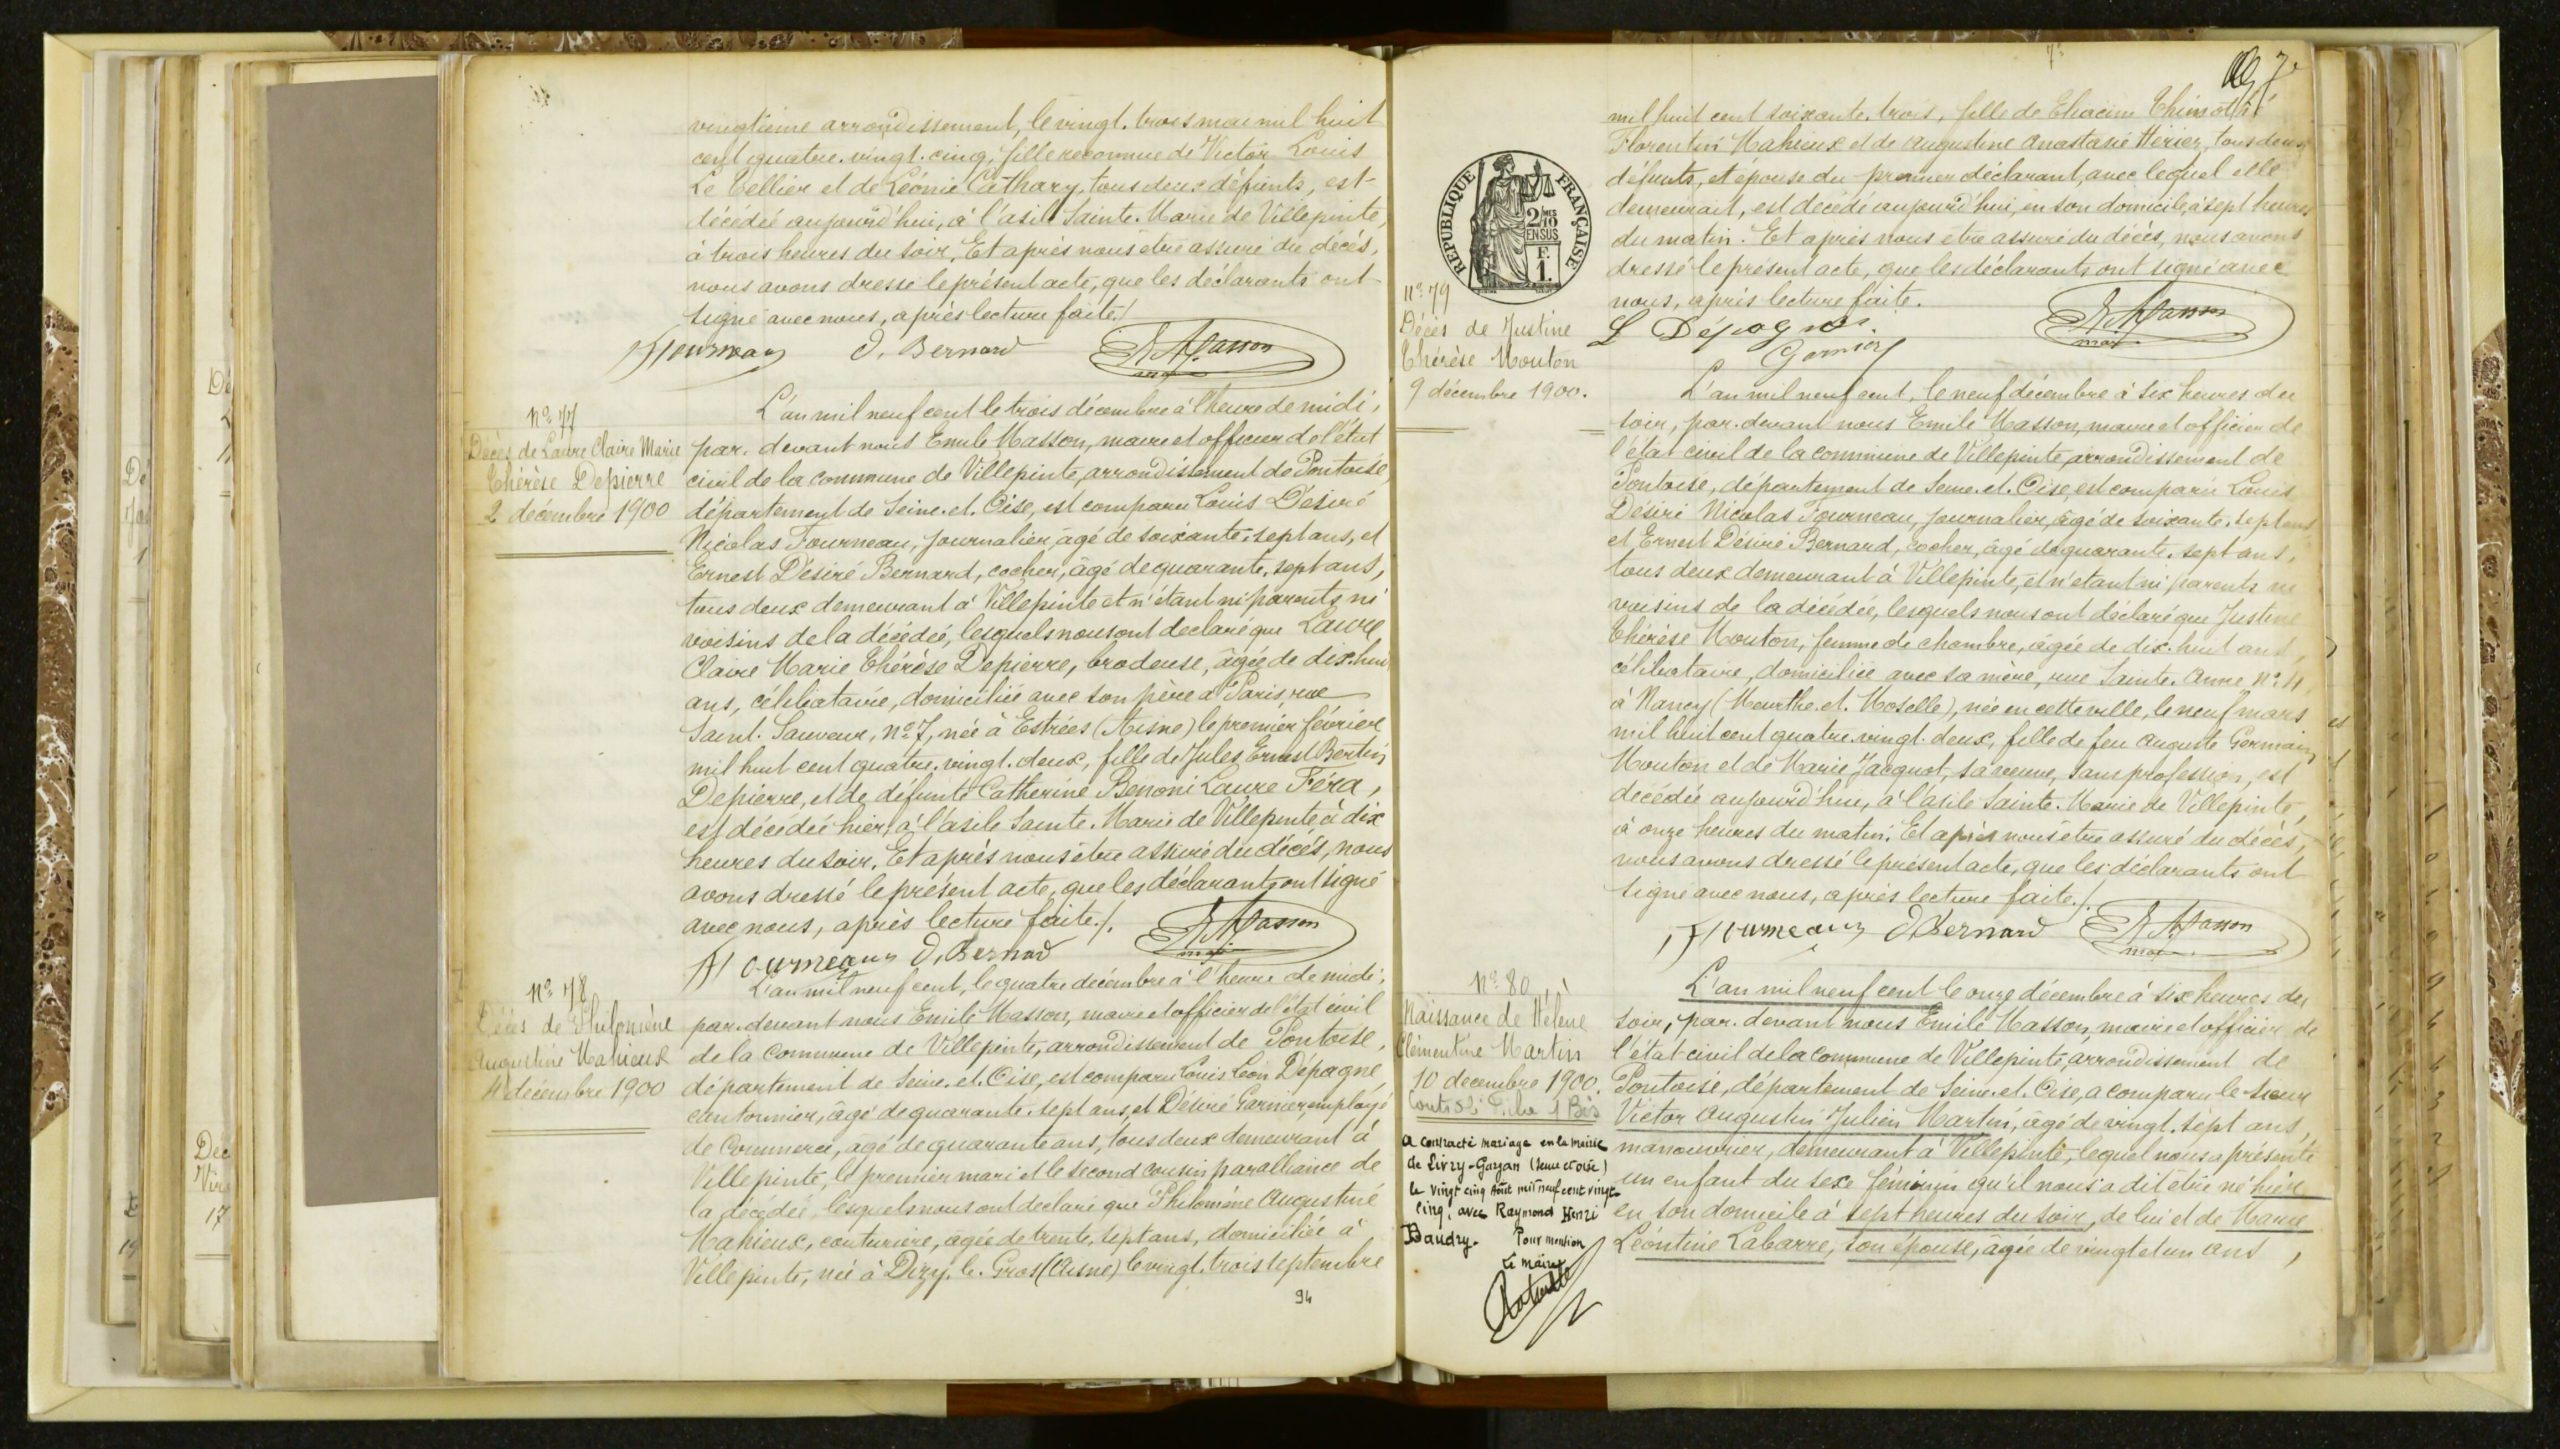 vingtième arrondissement, le vingt-trois mai mil huit
cent quatre-vingt-cinq, fille reconnue de Victor Louis
Le Tellier et de Léonie Cathary, tous deux défunts, est
décédée aujourd'hui, à l'asile Sainte-Marie de Villepinte,
à trois heures du soir. Et après nous être assuré du décès,
nous avons dressé le présent acte, que les déclarants ont
signé avec nous, après lecture faite./.
Fourneaux D. Bernard E. Masson
maire
No 77
Décès de Laure Claire Marie
Thérèse Depierre
2 décembre 1900
L'an mil neuf cent le trois décembre à l'heure de midi,
par-devant nous Emile Masson, maire et officier de l'état
civil de la commune de Villepinte, arrondissement de Pontoise,
département de Seine-et-Oise, est comparu Louis Désiré
Nicolas Fourneau, journalier, âgé de soixante-sept ans, et
Ernest Désiré Bernard, cocher, âgé de quarante-sept ans,
tous deux demeurant à Villepinte et n'étant ni parents ni
voisins de la décédée, lesquels nous ont déclaré que Laure
Claire Marie Thérèse Depierre, brodeuse, âgée de dix-huit
ans, célibataire, domiciliée avec son père à Paris, rue
Saint-Sauveur, No 7, née à Estrées (Aisne) le premier février
mil huit cent quatre-vingt-deux, fille de Jules Ernest Bertin
Depierre, et de défunte Catherine Benoni Laure Féra,
est décédée hier, à l'asile Sainte-Marie de Villepinte à dix
heures du soir. Et après nous être assuré du décès, nous
avons dressé le présent acte, que les déclarants ont signé
avec nous, après lecture faite./.
Fourneaux D. Bernard E. Masson
No 78
Décès de Philomène
Augustine Mahieux
4 décembre 1900
L'an mil neuf cent, le quatre décembre à l'heure de midi,
par-devant nous Emile Masson, maire et officier de l'état civil
de la commune de Villepinte, arrondissement de Pontoise,
département de Seine-et-Oise, est comparu Louis Léon Dépagne
cantonnier, âgé de quarante-sept ans, et Désiré Garnier, employé
de commerce, âgé de quarante ans, tous deux demeurant à
Villepinte, le premier mari et le second cousin par alliance de
la décédée, lesquels nous ont déclaré que Philomène Augustine
Mahieux, couturière, âgée de trente-sept ans, domiciliée à
Villepinte, née à Dizy-le-Gros (Aisne) le vingt-trois septembre
94
mil huit cent soixante-trois, fille de
Florentin Mahieux et de Augustine Anastasie Hérier, tous deux
défunts, et épouse du premier déclarant, avec lequel elle
demeurait, est décédé aujourd'hui, en son domicile, à sept heures
du matin. Et après nous être assuré du décès, nous avons
dressé le présent acte, que les déclarants ont signé avec
nous, après lecture faite.
L Dépagne E. Masson
Garnier maire
RÉPUBLIQUE FRANÇAISE
2/10MES
EN SUS
F.
1.
No 79
Décès de Justine
Thérèse Mouton
9 décembre 1900.
L'an mil neuf cent, le neuf décembre à six heures du
soir, par-devant nous Emile Masson, maire et officier de
l'état civil de la commune de Villepinte, arrondissement de
Pontoise, département de Seine-et-Oise, est comparu Louis
Désiré Nicolas Fourneau, journalier, âgé de soixante-sept ans
et Ernest Désiré Bernard, cocher, âgé de quarante-sept ans,
tous deux demeurant à Villepinte, et n'étant ni parents ni
voisins de la décédée, lesquels nous ont déclaré que Justine
Thérèse Mouton, femme de chambre, âgée de dix-huit ans,
célibataire, domiciliée avec sa mère, rue Sainte-Anne No
à Nancy (Meurthe-et-Moselle), née en cette ville, le neuf mars
mil huit cent quatre-vingt-deux, fille de feu Auguste Germain
Mouton et de Marie Jacquot, sa veuve, sans profession, est
décédée aujourd'hui, à l'asile Sainte-Marie de Villepinte,
à onze heures du matin. Et après nous être assuré du décès,
nous avons dressé le présent acte, que les déclarants ont
signé avec nous, après lecture faite./.
Fourneaux D. Bernard E. Masson
maire
No 80
Naissance de Hélène
Clémentine Martin
10 décembre 1900.
L'an mil neuf cent le onze décembre à six heures du
soir, par-devant nous Emile Masson, maire et officier de
l'état-civil de la commune de Villepinte, arrondissement de
Pontoise, département de Seine-et-Oise, a comparu le sieur
Victor Augustin Julien Martin, âgé de vingt-sept ans,
manouvrier, demeurant à Villepinte, lequel nous a présenté
un enfant du sexe féminin qu'il nous a dit être né hier
en son domicile à sept heures du soir, de lui et de Marie
Léontine Labarre, son épouse, âgée de vingt et un ans,
A contracté mariage en la mairie
de Livry-Gargan (Seine et Oise)
le vingt cinq Août mil neuf cent vingt
cinq, avec Raymond Henri
Baudry. Pour mention
Le maire